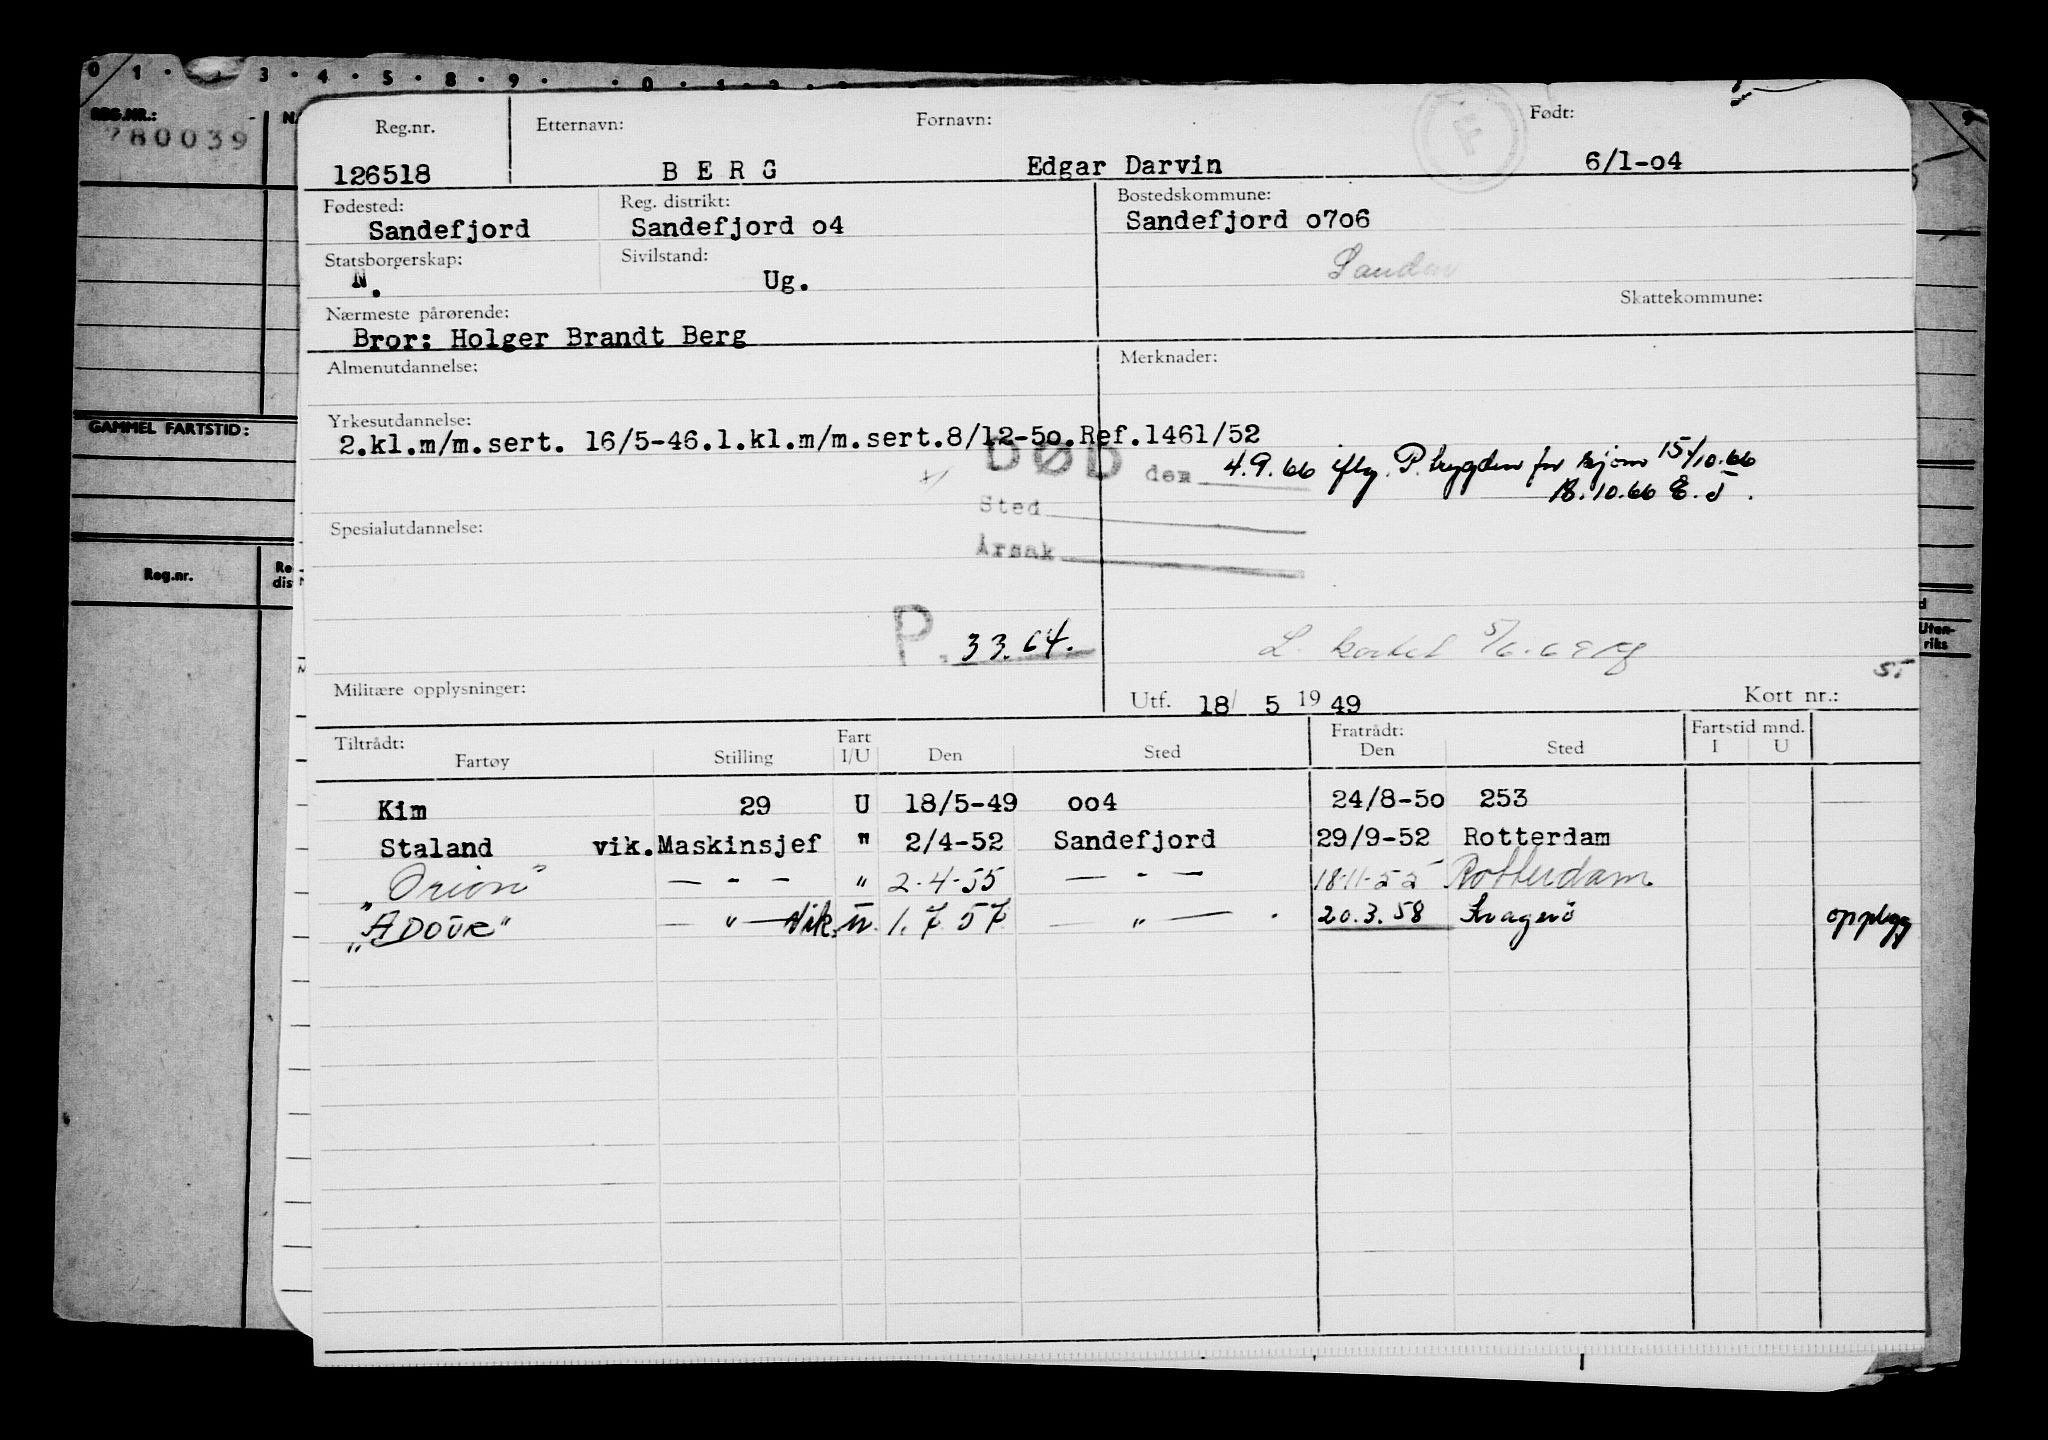 0 1 · 3 · 4 · 5 · 8 · 9 · · 0 · 1 · 2 · 3
REG.NR.:
280039
GAMMEL FARTSTID:
Reg.nr.
Uten-
riks
Reg.nr. Etternavn: Fornavn: Født:
126518 B E R G Edgar Darvin 6/1-o4
F
Fødested: Reg. distrikt: Bostedskommune:
Sandefjord Sandefjord o4 Sandefjord o7o6
Statsborgerskap: Sivilstand:
N. Ug.
Skattekommune:
Nærmeste pårørende:
Bror: Holger Brandt Berg
Almenutdannelse: Merknader:
Yrkesutdannelse:
2.kl.m/m.sert. 16/5-46.1.kl.m/m.sert.8/12-5o.Ref.1461/52
DØD den 4.9.66 iflg. P. trygden for sjøm 15/10.66
18.10.66
Sted
Spesialutdannelse:
Årsak
P. 33.64.
L. kortet 5/6.69
ST
Militære opplysninger: Utf. 18/ 5 19 49 Kort nr.:
Tiltrådt: Fart Fratrådt: Fartstid mnd.
Fartøy Stilling I/U Den Sted Den Sted I U
Kim 29 U 18/5-49 oo4 24/8-5o 253
Staland vik.Maskinsjef " 2/4-52 Sandefjord 29/9-52 Rotterdam
"Orion" — - — " 2-4-55 — - — 18-11-55 Rotterdam
"ADOUR" — " — Vik. u. 1.7 57 — " — . 20.3.58 Kragerø opplegg